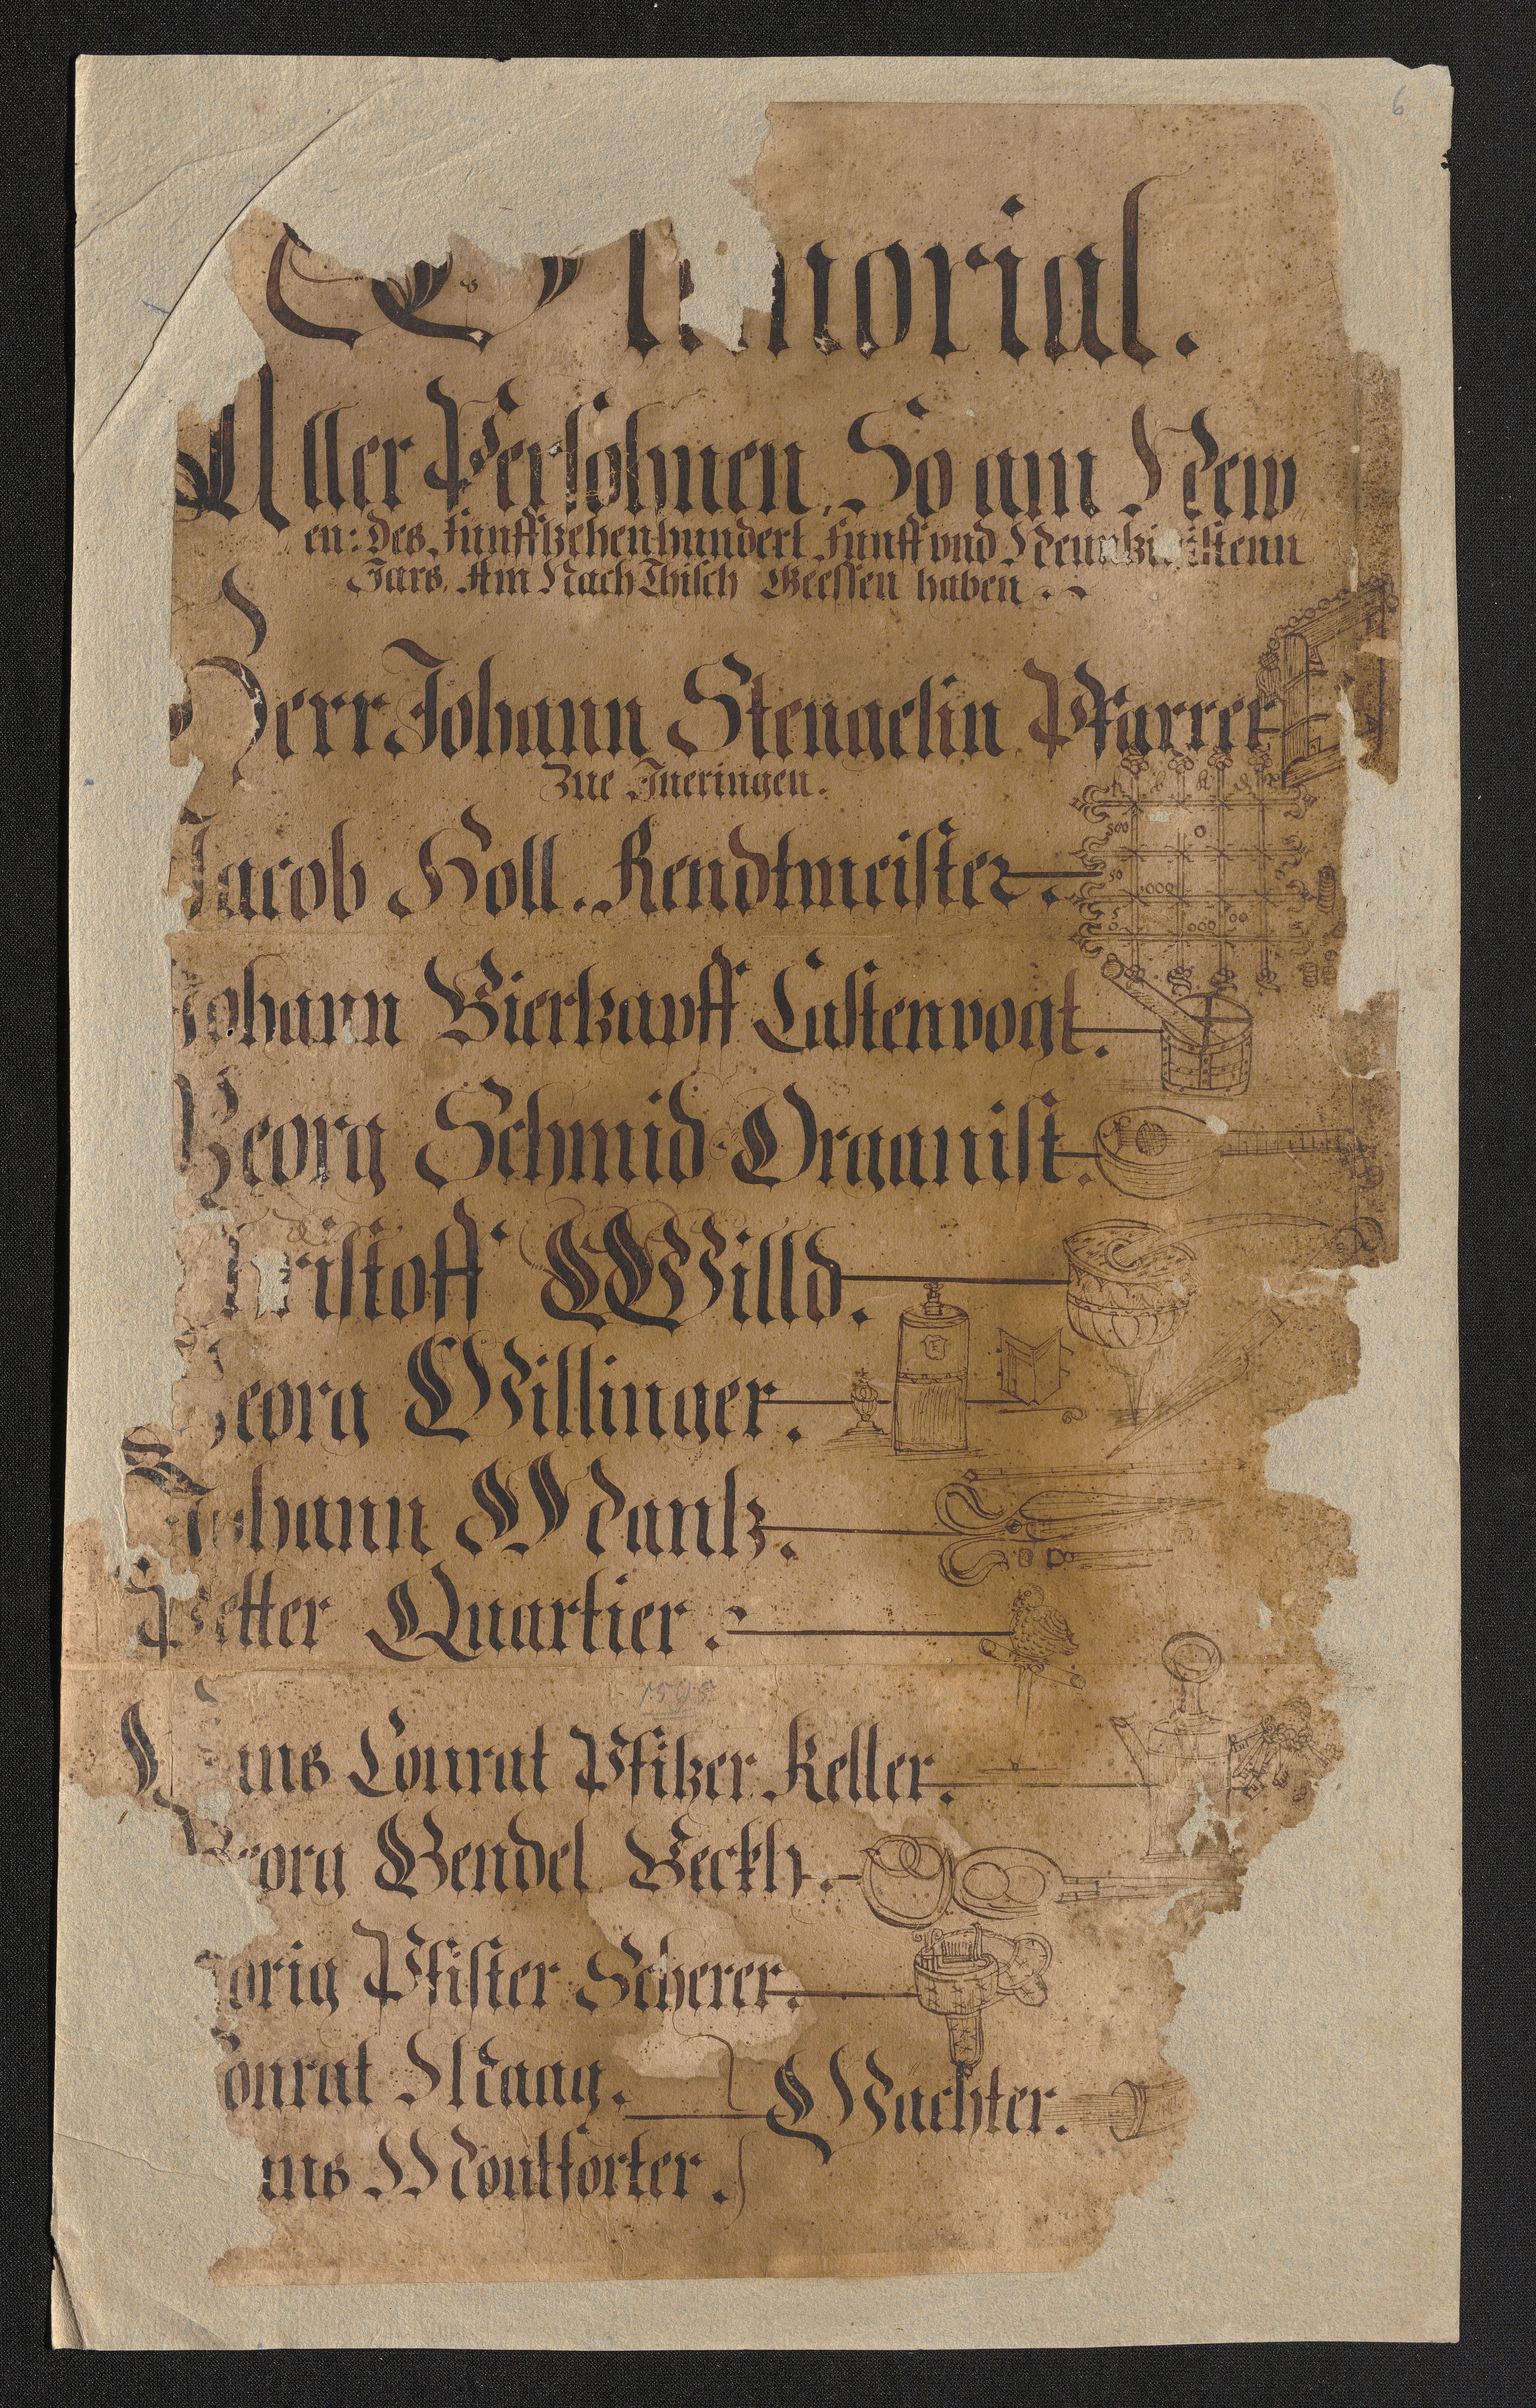 6
Memorial.
Aller Persohnen, So am New
en: Des Funfftzehenhundert Funff vnd Neuntzigistenn
Jars, Am Nach Thisch Geessen haben
Herr Johann Stengelin Pfarrer
Zue Ineringen.
Jacob Holl. Rendtmeister.
Johann Biertzapff Castenvogt.
Georg Schmid Organist.
Christoff Willd.
Georg Willinger.
Johann Mantz.
Petter Quartier.
1595
Hans Conrat Pfitzer Keller.
Georg Bendel Beckh.
Jorig Pfister Scherer.
Conrat Maag.
Wachter.
ns Montforter.